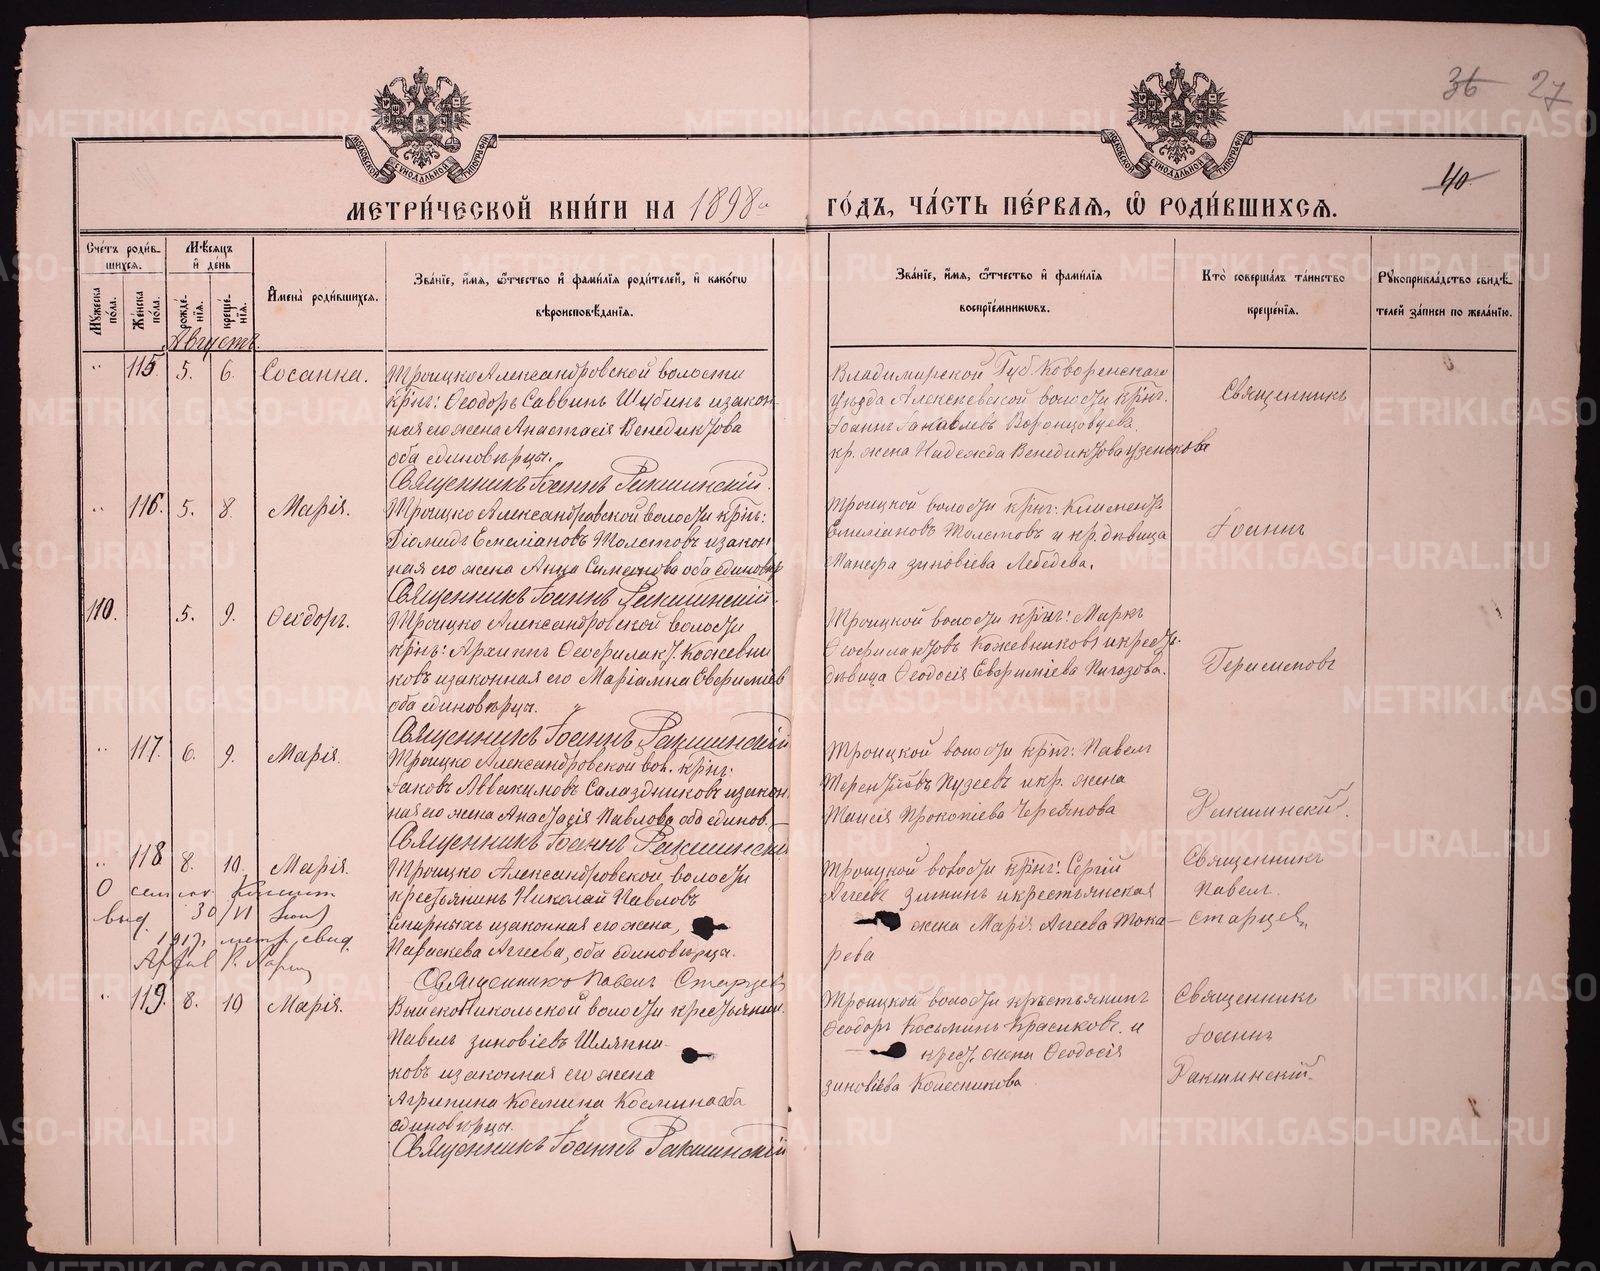 36 27
40
МОСКОВСКОЙ СѴНОДАЛЬНОЙ ТИПОГРАФІИ
МОСКОВСКОЙ СѴНОДАЛЬНОЙ ТИПОГРАФІИ
МЕТРИ́ЧЕСКОЙ КНИ́ГИ НА 1898й ГО́ДЪ, ЧА́СТЬ ПЕ́РВАЯ, Ѿ РОДИ́ВШИХСѦ.
Счетъ роди́в-
шихсѧ.
Мѹ́жеска по́ла.
Же́нска по́ла.
Мѣ́сѧцъ
и҆ де́нь
рожде́нїѧ.
креще́нїѧ.
И҆мена̀ роди́вшихсѧ.
Зва́нїе, и҆́мѧ, ѻ҆́тчество и҆ фами́лїѧ роди́телей, и҆ како́гѡ
вѣроисповѣ́данїѧ.
Зва́нїе, и҆́мѧ, ѻ҆́тчество и҆ фами́лїѧ
воспрїе́мникѡвъ.
Кто̀ соверша́лъ та́инство
креще́нїѧ.
Рѹкоприкла́дство свидѣ́-
телей за́писи по жела́нїю.
Августъ.
" 115. 5. 6. Сосанна.
Троицко Александровской волости
крнъ: Ѳеодоръ Саввинъ Шубинъ и закон-
ная его жена Анастасія Венедиктова
оба единовѣрцы.
Священникъ Іоаннъ Ракшинскій.
Владимирской Губ Коворенскаго
уѣзда Алексѣевской волости крнъ.
Іоаннъ Воронцовъ
кр. жена Надежда Венедиктова
Священникъ
" 116. 5. 8. Марія.
Троицко Александровской волости крнъ:
Діомидъ Емеліановъ Толстовъ и закон
ная его жена Анна Симеонова оба единовѣр
Священникъ Іоаннъ Ракшинскій.
Троицкой волости крнъ: Климентъ
Емиліановъ Толстовъ и кр. дѣвица
Зиновіева Лебедева.
Іоаннъ
110. 5. 9. Ѳеодоръ.
Троицко Александровской волости
крнъ: Архиппъ Ѳеофилакт. Кожевни
ковъ и законная его Маріамна Евфиміев
оба единовѣрцы.
Священникъ Іоаннъ Ракшинскій
Троицкой волости крнъ: Маркъ
Ѳеофилактовъ Кожевниковъ и крест.
дѣвица Ѳеодосія Евфиміева
" 117. 6. 9. Марія.
Троицко Александровской вол. крнъ.
Іаковъ Аввакумовъ Салаздниковъ и закон
ная его жена Анастасія Павлова оба единов.
Священникъ Іоаннъ Ракшинскій
Троицкой волости крнъ: Павелъ
Терентіевъ Пузеевъ и кр. жена
Таисія Прокопіева
Ракшинскій.
" 118 8. 10. Марія.
выд. 30/VI
1917, метр. свид.
Троицко Александровской волости
крестьянинъ Николай Павловъ
Смирныхъ и законная его жена,
Параскева Агеева, оба единовѣрца.
Священникъ Павелъ Старцев
Троицкой волости крнъ: Сергій
Агеевъ Зиминъ и крестьянская
жена Марія Агеева Тока-
рева
Священникъ
Павелъ.
Старцевъ
" 119. 8. 10 Марія.
Выйско Никольской волости крестьянин.
Павелъ Зиновіевъ Шляпни-
ковъ и законная его жена
Агрипина Космина Космина оба
единовѣрцы.
Священникъ Іоаннъ Ракшинскій
Троицкой волости крестьянинъ
Ѳеодоръ Косьминъ Красиковъ. и
крест. жена Ѳеодосія
Зиновіева Колесникова
Священникъ
Іоаннъ
Ракшинскій.
METRIKI.GASO-URAL.RU